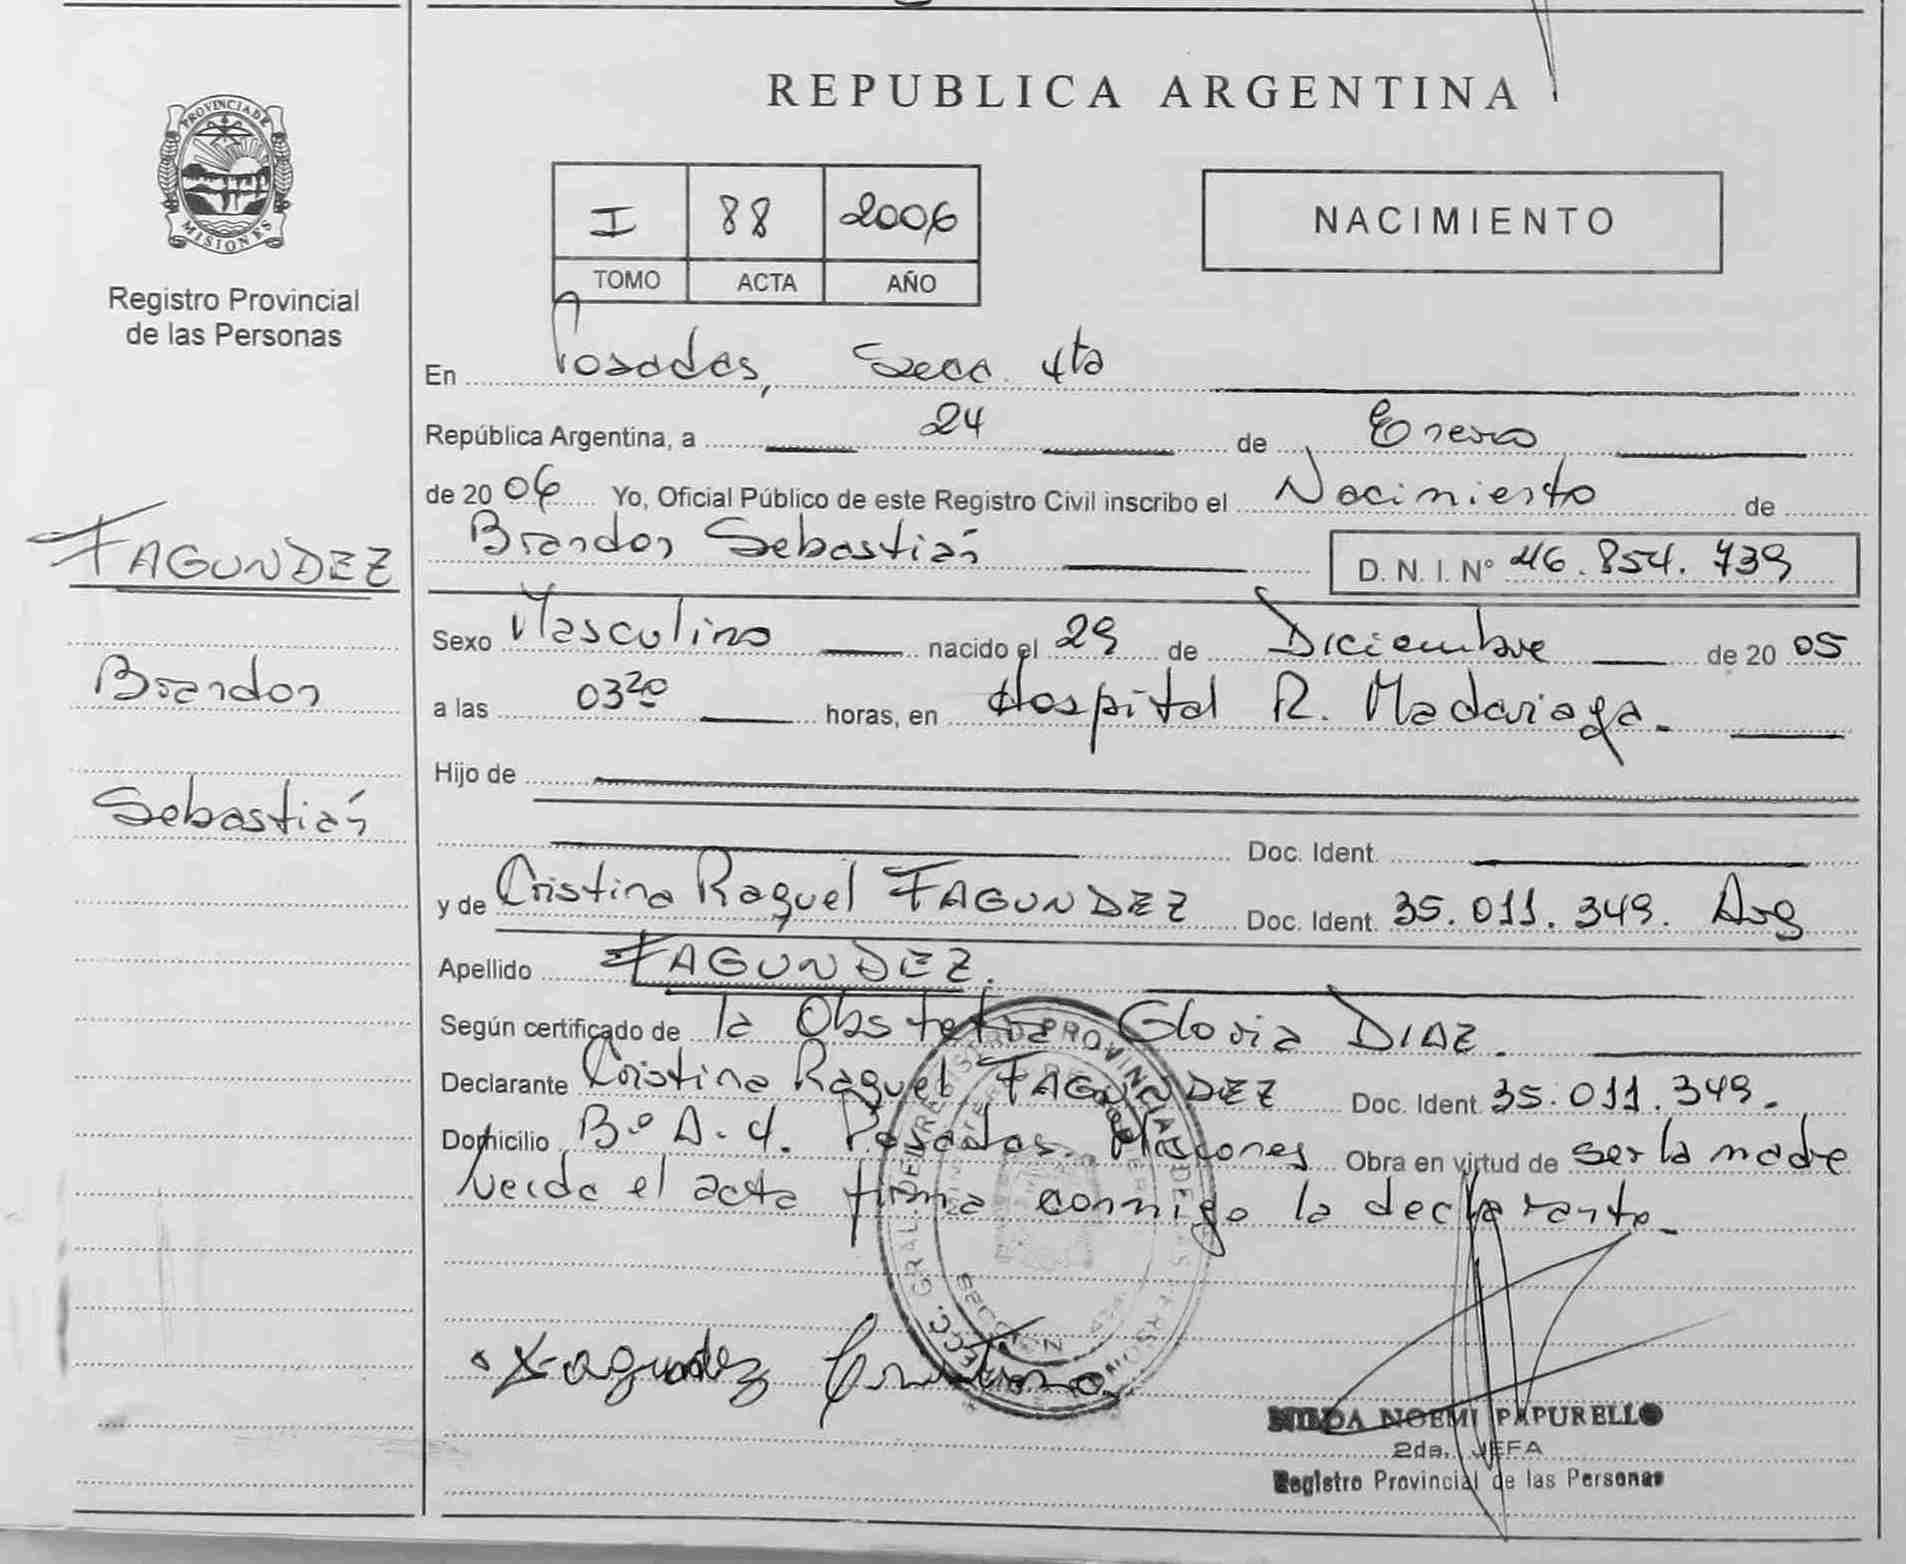 REPUBLICA ARGENTINA
PROVINCIA DE MISIONES
Registro Provincial
de las Personas
I 88 2006
TOMO ACTA AÑO
NACIMIENTO
En Posadas, Secc. 4ta
República Argentina, a 24 de Enero
de 20 06 Yo, Oficial Público de este Registro Civil inscribo el Nacimiento de
Brandon Sebastián D. N. I. Nº 46.854.739
FAGUNDEZ
Brandon
Sebastián
Sexo Masculino nacido el 29 de Diciembre de 20 05
a las 03 20 horas, en Hospital R. Madariaga.
Hijo de
Doc. Ident.
y de Cristina Raquel FAGUNDEZ Doc. Ident. 35.011.349. Arg
Apellido FAGUNDEZ.
Según certificado de la Obstetra Gloria DIAZ.
Declarante Cristina Raquel FAGUNDEZ Doc. Ident. 35.011.349.
Domicilio Bº A-4. Posadas. Misiones Obra en virtud de ser la madre
Leida el acta firma conmigo la declarante.
Fagundez Cristina
NILDA NOEMI PAPURELLO
2da. JEFA
Registro Provincial de las Personas